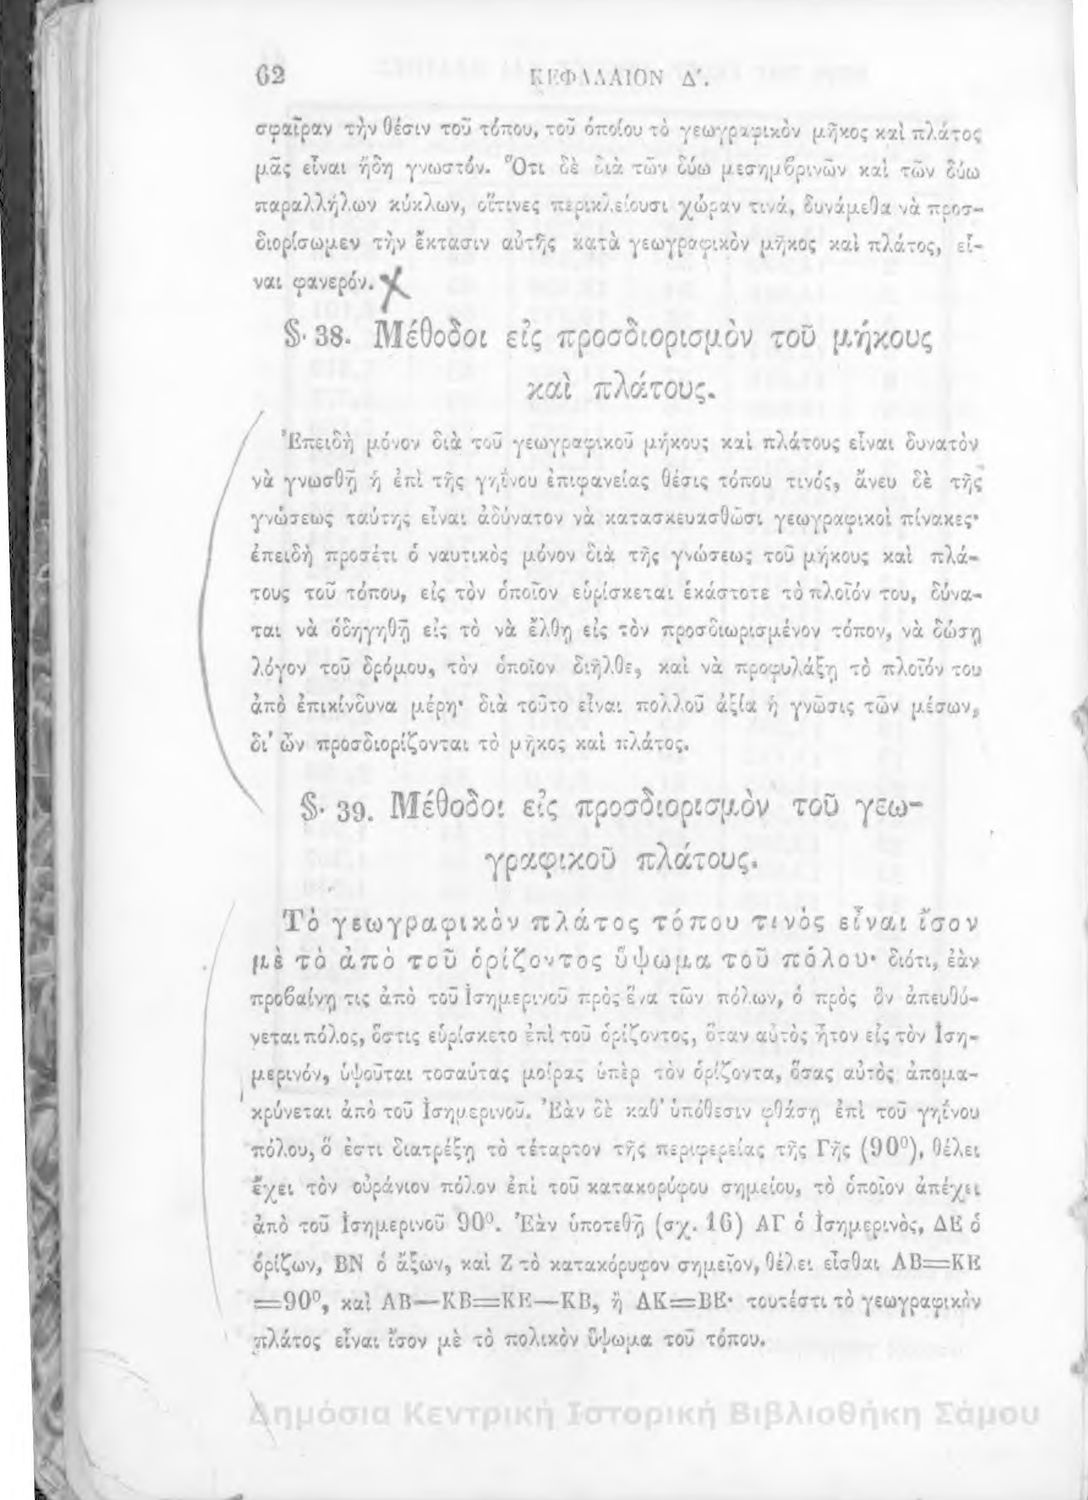 62 ΚΕΦΑΛΑΙΟΝ Δ'.
σφαῖραν τὴν θέσιν τοῦ τόπου, τοῦ ὁποίου τὸ γεωγραφικὸν μῆκος καὶ πλάτος
μᾶς εἶναι ἤδη γνωστόν. Ὅτι δὲ διὰ τῶν δύω μεσημβρινῶν καὶ τῶν δύω
παραλλήλων κύκλων, οἵτινες περικλείουσι χώραν τινά, δυνάμεθα νὰ προσ-
διορίσωμεν τὴν ἔκτασιν αὐτῆς κατὰ γεωγραφικὸν μῆκος καὶ πλάτος, εἶ-
ναι φανερόν.
§. 38. Μέθοδοι εἰς προσδιορισμὸν τοῦ μήκους
καὶ πλάτους.
Ἐπειδὴ μόνον διὰ τοῦ γεωγραφικοῦ μήκους καὶ πλάτους εἶναι δυνατὸν
νὰ γνωσθῇ ἡ ἐπὶ τῆς γηΐνου ἐπιφανείας θέσις τόπου τινός, ἄνευ δὲ τῆς
γνώσεως ταύτης εἶναι ἀδύνατον νὰ κατασκευασθῶσι γεωγραφικοὶ πίνακες·
ἐπειδὴ προσέτι ὁ ναυτικὸς μόνον διὰ τῆς γνώσεως τοῦ μήκους καὶ πλά-
τους τοῦ τόπου, εἰς τὸν ὁποῖον εὑρίσκεται ἑκάστοτε τὸ πλοῖόν του, δύνα-
ται νὰ ὁδηγηθῇ εἰς τὸ νὰ ἔλθῃ εἰς τὸν προσδιωρισμένον τόπον, νὰ δώσῃ
λόγον τοῦ δρόμου, τὸν ὁποῖον διῆλθε, καὶ νὰ προφυλάξῃ τὸ πλοῖόν του
ἀπὸ ἐπικίνδυνα μέρη· διὰ τοῦτο εἶναι πολλοῦ ἀξία ἡ γνῶσις τῶν μέσων,
δι' ὧν προσδιορίζονται τὸ μῆκος καὶ πλάτος.
§. 39. Μέθοδοι εἰς προσδιορισμὸν τοῦ γεω-
γραφικοῦ πλάτους.
Τὸ γεωγραφικὸν πλάτος τόπου τινὸς εἶναι ἴσον
μὲ τὸ ἀπὸ τοῦ ὁρίζοντος ὕψωμα τοῦ πόλου· διότι, ἐὰν
προβαίνῃ τις ἀπὸ τοῦ Ἰσημερινοῦ πρὸς ἕνα τῶν πόλων, ὁ πρὸς ὃν ἀπευθύ-
νεται πόλος, ὅστις εὑρίσκετο ἐπὶ τοῦ ὁρίζοντος, ὅταν αὐτὸς ἦτον εἰς τὸν Ἰση-
μερινόν, ὑψοῦται τοσαύτας μοίρας ὑπὲρ τὸν ὁρίζοντα, ὅσας αὐτὸς ἀπομα-
κρύνεται ἀπὸ τοῦ Ἰσημερινοῦ. Ἐὰν δὲ καθ' ὑπόθεσιν φθάσῃ ἐπὶ τοῦ γηΐνου
πόλου, ὅ ἐστι διατρέξῃ τὸ τέταρτον τῆς περιφερείας τῆς Γῆς (90⁰), θέλει
ἔχει τὸν οὐράνιον πόλον ἐπὶ τοῦ κατακορύφου σημείου, τὸ ὁποῖον ἀπέχει
ἀπὸ τοῦ Ἰσημερινοῦ 90⁰. Ἐὰν ὑποτεθῇ (σχ. 16) ΑΓ ὁ Ἰσημερινὸς, ΔΕ ὁ
ὁρίζων, ΒΝ ὁ ἄξων, καὶ Ζ τὸ κατακόρυφον σημεῖον, θέλει εἶσθαι ΑΒ=ΚΕ
=90⁰, καὶ ΑΒ—ΚΒ=ΚΕ—ΚΒ, ἢ ΑΚ=ΒΕ· τουτέστι τὸ γεωγραφικὸν
πλάτος εἶναι ἴσον μὲ τὸ πολικὸν ὕψωμα τοῦ τόπου.
Δημόσια Κεντρική Ιστορική Βιβλιοθήκη Σάμου